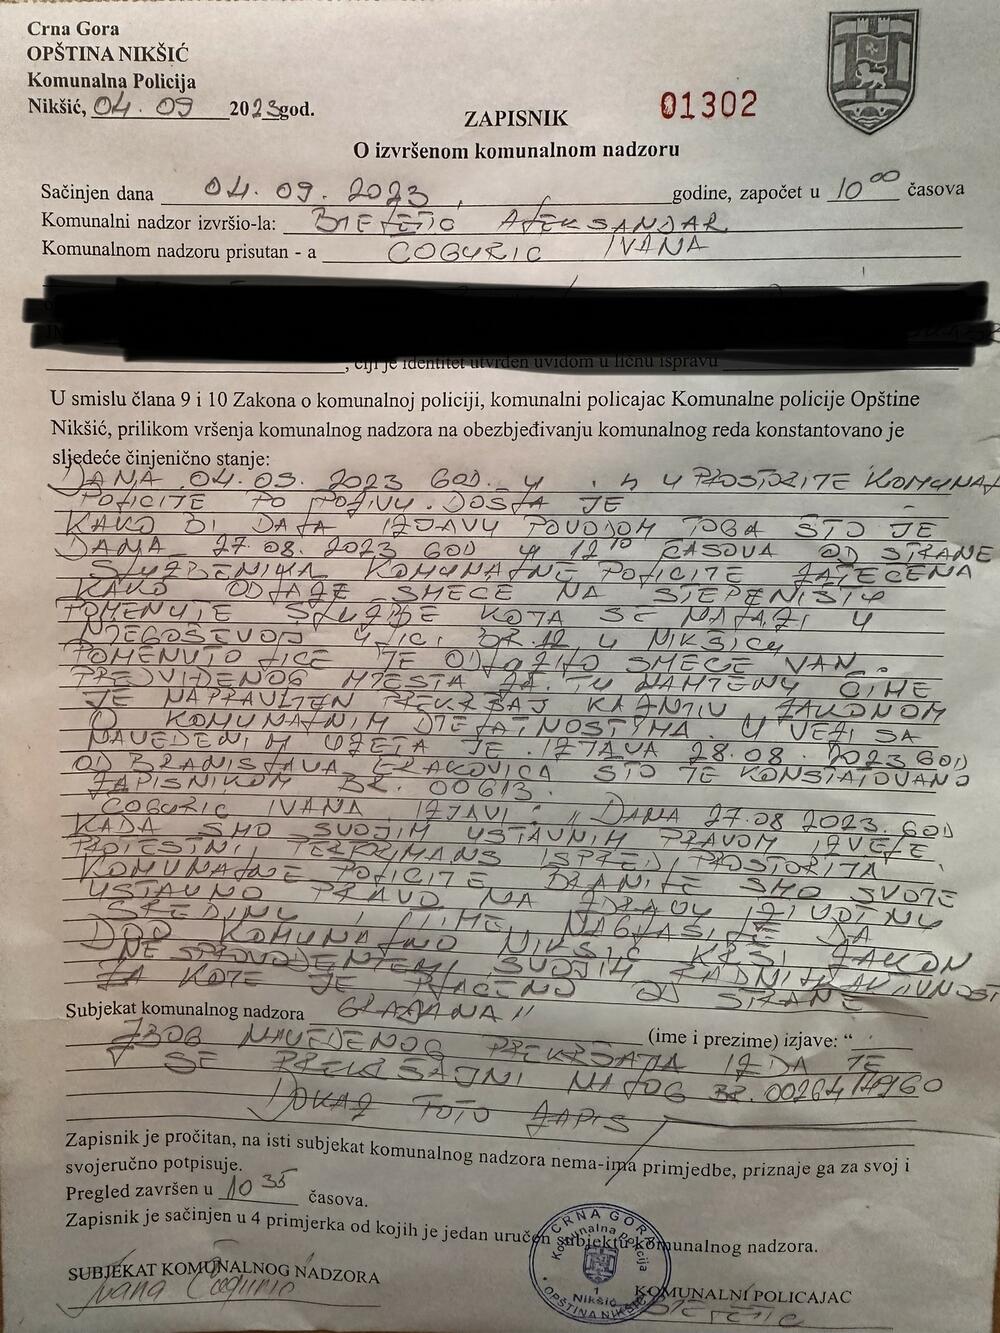 Crna Gora
OPŠTINA NIKŠIĆ
Komunalna Policija
Nikšić, 04. 09 2023god.
ZAPISNIK
01302
O izvršenom komunalnom nadzoru
Sačinjen dana 04. 09. 2023 godine, započet u 10 00 časova
Komunalni nadzor izvršio-la: ALEKSANDAR
Komunalnom nadzoru prisutan - a COGURIC IVANA
, čiji je identitet utvrđen uvidom u ličnu ispravu
U smislu člana 9 i 10 Zakona o komunalnoj policiji, komunalni policajac Komunalne policije Opštine
Nikšić, prilikom vršenja komunalnog nadzora na obezbjeđivanju komunalnog reda konstantovano je
sljedeće činjenično stanje:
DANA 04.09. 2023 GOD. U H U PROSTORIJE KOMUNAL
POLICIJE PO POZIVU DOŠLA JE
KAKO BI DALA IZJAVU POVODOM TOGA ŠTO JE
DANA 27.08. 2023 GOD U 12 10 ČASOVA OD STRANE
SLUŽBENIKA KOMUNALNE POLICIJE ZATEČENA
KAKO ODLAŽE SMEĆE NA STEPENIŠTU
POMENUTE SLUŽBE KOJA SE NALAZI U
NJEGOŠEVOJ ULICI BR.12 U NIKŠIĆU
POMENUTO LICE JE ODLOŽILO SMEĆE VAN
PREDVIĐENOG MJESTA ZA TU NAMJENU ČIME
JE NAPRAVLJEN PREKRŠAJ KAŽNJIV ZAKONOM
O KOMUNALNIM DJELATNOSTIMA. U VEZI SA
NAVEDENIM UZETA JE IZJAVA 28.08. 2023 GOD
OD BRANISLAVA ŠTO JE KONSTATOVANO
ZAPISNIKOM BR. 00613.
COGURIC IVANA IZJAVI: „DANA 27.08 2023. GOD
KADA SMO SVOJIM USTAVNIM PRAVOM IZVELE
PROTESTNI PERFORMANS ISPRED PROSTORIJA
KOMUNALNE POLICIJE BRANILE SMO SVOJE
USTAVNO PRAVO NA ZDRAVU ŽIVOTNU
SREDINU I TIME NAGLASILE DA
DOO KOMUNALNO NIKŠIĆ KRŠI ZAKON
NE SPROVOĐENJEM SVOJIH RADNIH AKTIVNOSTI
ZA KOJE JE PLAĆENO OD STRANE
Subjekat komunalnog nadzora GRAĐANA"
(ime i prezime) izjave: “
ZBOG NAVEDENOG PREKRŠAJA IZDA JE
SE PREKRŠAJNI NALOG BR.
DOKAZ FOTO ZAPIS
Zapisnik je pročitan, na isti subjekat komunalnog nadzora nema-ima primjedbe, priznaje ga za svoj i
svojeručno potpisuje.
Pregled završen u 10 35 časova.
Zapisnik je sačinjen u 4 primjerka od kojih je jedan uručen subjektu komunalnog nadzora.
CRNA GORA
Komunalna Policija
1
Nikšić
OPŠTINA NIKŠIĆ
SUBJEKAT KOMUNALNOG NADZORA
Ivana
KOMUNALNI POLICAJAC